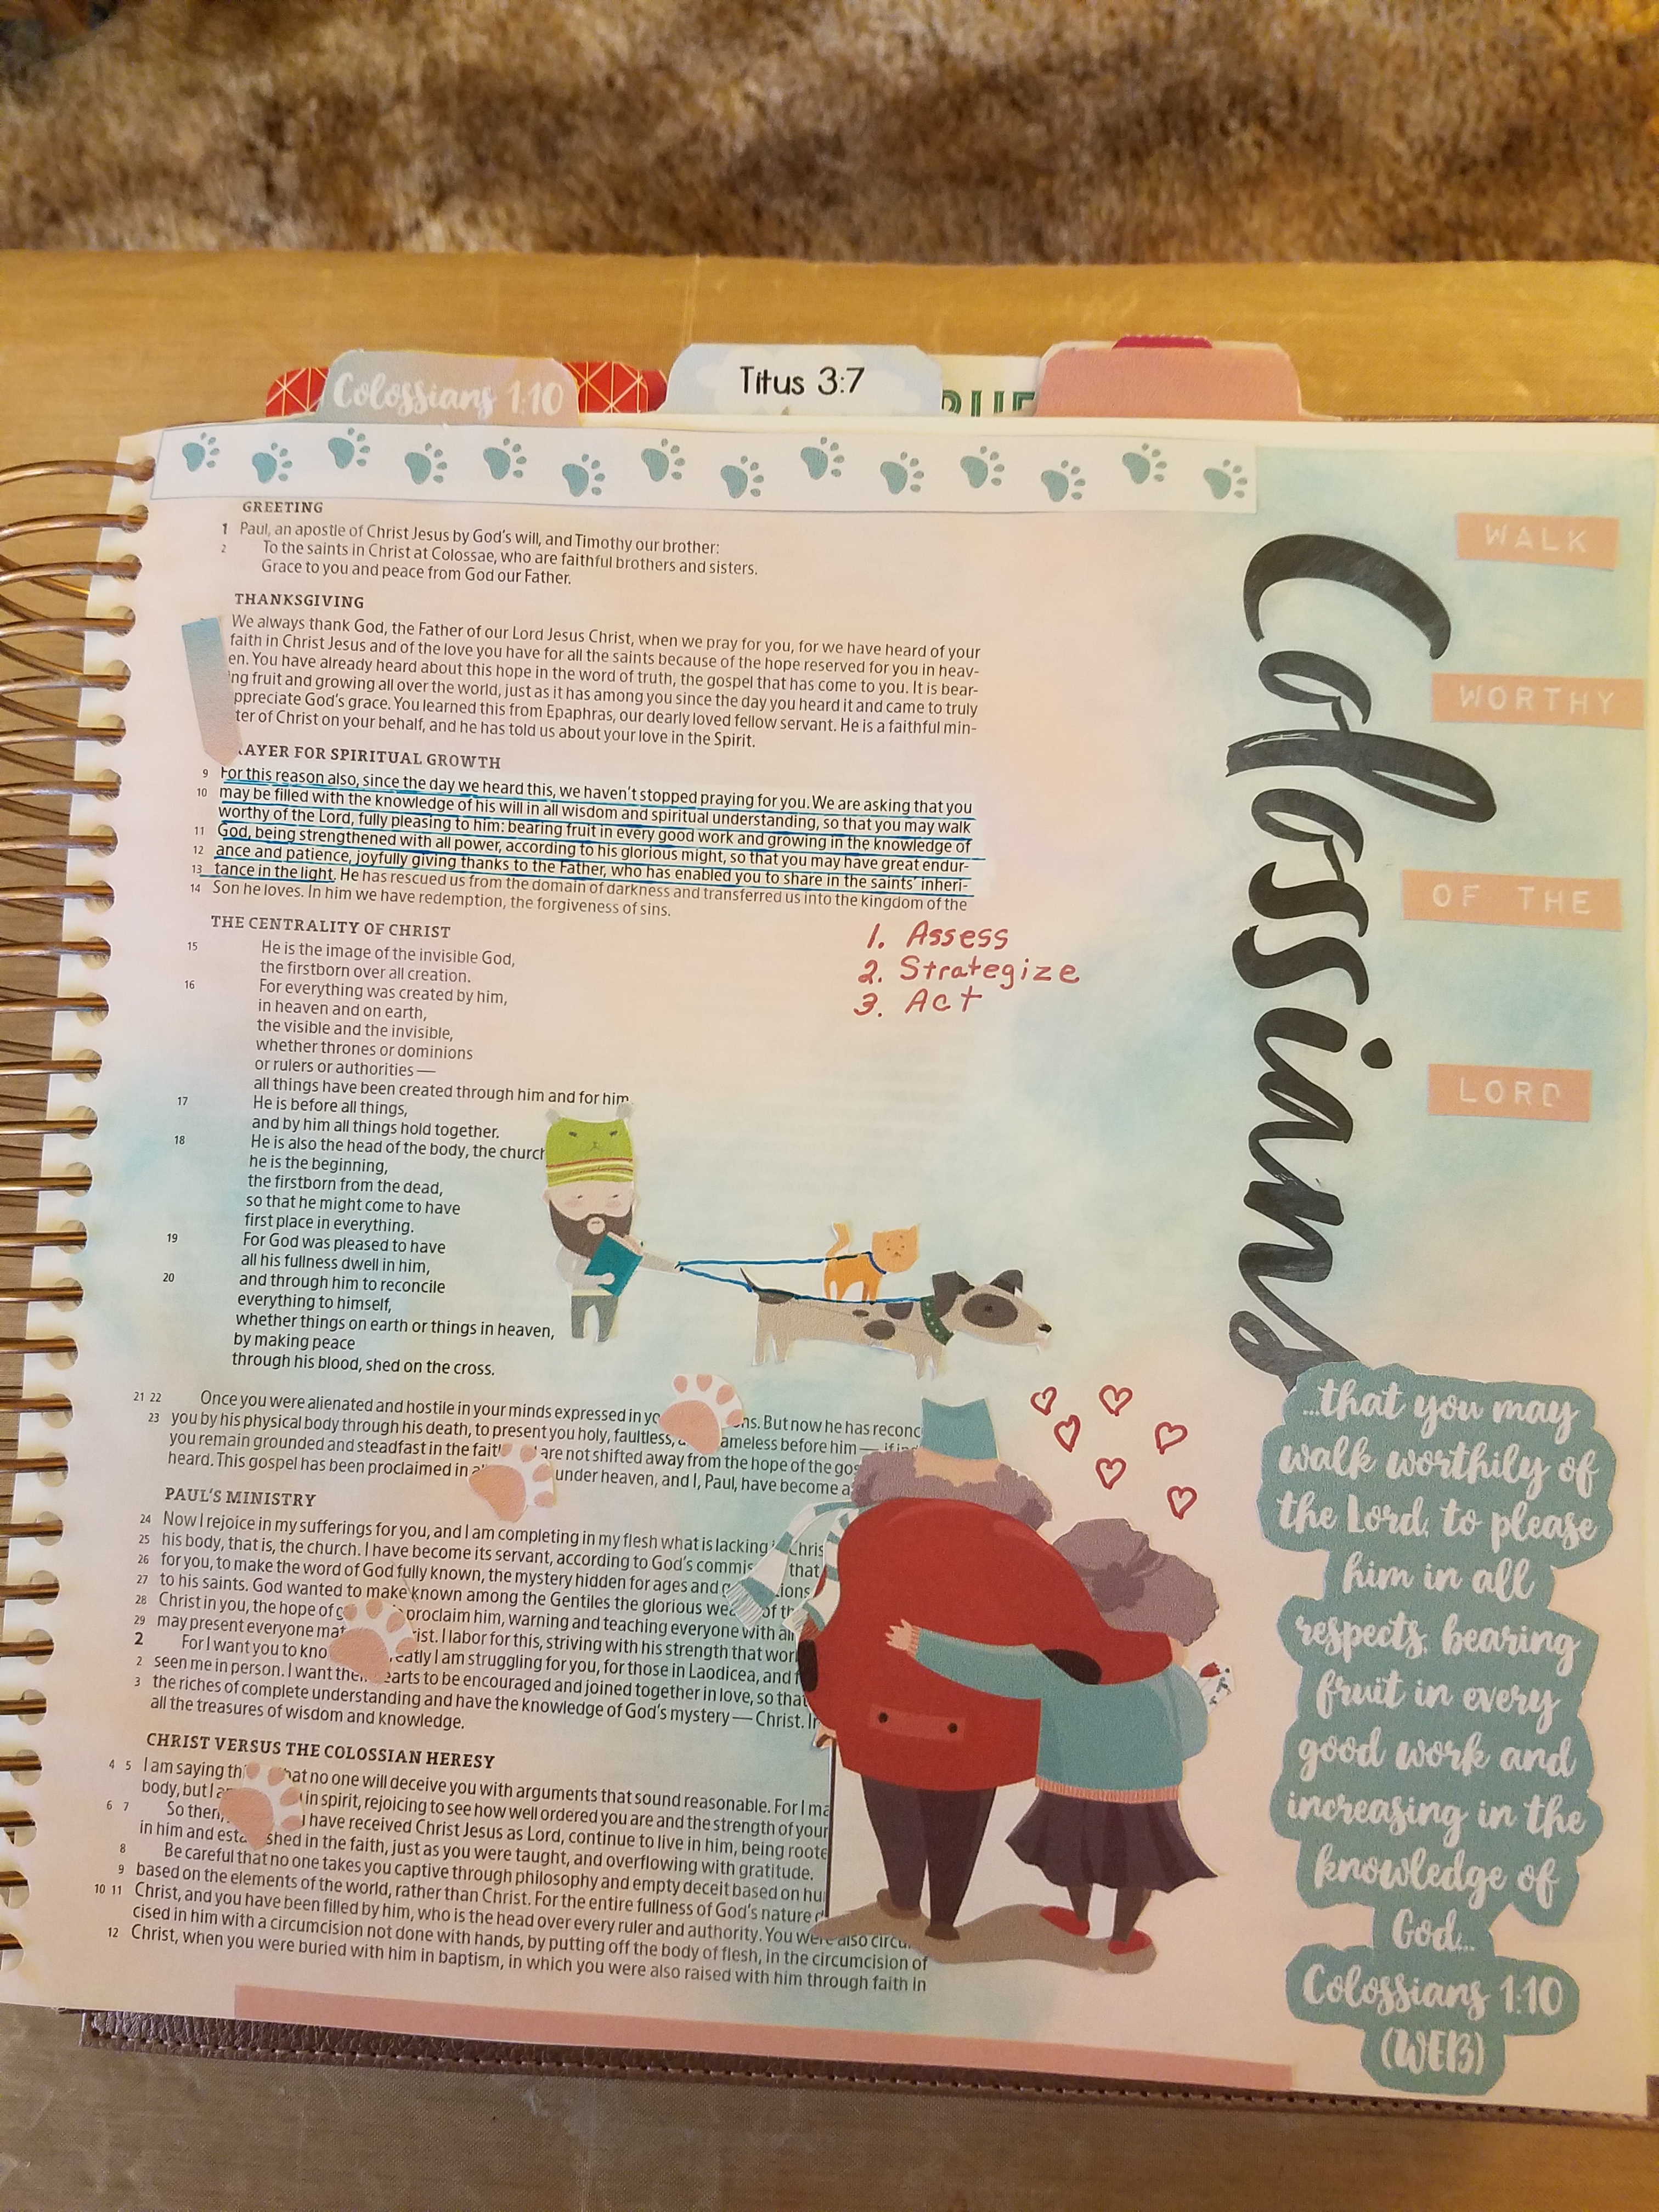 Colossians 1:10
Titus 3:7
GREETING
1 Paul, an apostle of Christ Jesus by God's will, and Timothy our brother:
2 To the saints in Christ at Colossae, who are faithful brothers and sisters.
Grace to you and peace from God our Father.
THANKSGIVING
We always thank God, the Father of our Lord Jesus Christ, when we pray for you, for we have heard of your
faith in Christ Jesus and of the love you have for all the saints because of the hope reserved for you in heav-
en. You have already heard about this hope in the word of truth, the gospel that has come to you. It is bear-
ng fruit and growing all over the world, just as it has among you since the day you heard it and came to truly
ppreciate God's grace. You learned this from Epaphras, our dearly loved fellow servant. He is a faithful min-
ter of Christ on your behalf, and he has told us about your love in the Spirit.
RAYER FOR SPIRITUAL GROWTH
9 For this reason also, since the day we heard this, we haven't stopped praying for you. We are asking that you
10 may be filled with the knowledge of his will in all wisdom and spiritual understanding, so that you may walk
worthy of the Lord, fully pleasing to him: bearing fruit in every good work and growing in the knowledge of
11 God, being strengthened with all power, according to his glorious might, so that you may have great endur-
12 ance and patience, joyfully giving thanks to the Father, who has enabled you to share in the saints' inheri-
13 tance in the light. He has rescued us from the domain of darkness and transferred us into the kingdom of the
14 Son he loves. In him we have redemption, the forgiveness of sins.
1. Assess
2. Strategize
3. Act
THE CENTRALITY OF CHRIST
15 He is the image of the invisible God,
the firstborn over all creation.
16 For everything was created by him,
in heaven and on earth,
the visible and the invisible,
whether thrones or dominions
or rulers or authorities —
all things have been created through him and for him.
17 He is before all things,
and by him all things hold together.
18 He is also the head of the body, the church
he is the beginning,
the firstborn from the dead,
so that he might come to have
first place in everything.
19 For God was pleased to have
all his fullness dwell in him,
20 and through him to reconcile
everything to himself,
whether things on earth or things in heaven,
by making peace
through his blood, shed on the cross.
21 22 Once you were alienated and hostile in your minds expressed in yo ns. But now he has reconc
23 you by his physical body through his death, to present you holy, faultless, ameless before him —
you remain grounded and steadfast in the fait are not shifted away from the hope of the gos
heard. This gospel has been proclaimed in a under heaven, and I, Paul, have become a
PAUL'S MINISTRY
24 Now I rejoice in my sufferings for you, and I am completing in my flesh what is lacking Chris
25 his body, that is, the church. I have become its servant, according to God's commis that
26 for you, to make the word of God fully known, the mystery hidden for ages and ions
27 to his saints. God wanted to make known among the Gentiles the glorious wea of th
28 Christ in you, the hope of g proclaim him, warning and teaching everyone with all
29 may present everyone mat rist. I labor for this, striving with his strength that wor
2 For I want you to kno eatly I am struggling for you, for those in Laodicea, and f
2 seen me in person. I want the earts to be encouraged and joined together in love, so that
3 the riches of complete understanding and have the knowledge of God's mystery — Christ. In
all the treasures of wisdom and knowledge.
CHRIST VERSUS THE COLOSSIAN HERESY
4 5 I am saying thi hat no one will deceive you with arguments that sound reasonable. For I ma
body, but I a in spirit, rejoicing to see how well ordered you are and the strength of your
6 7 So then, have received Christ Jesus as Lord, continue to live in him, being roote
in him and esta shed in the faith, just as you were taught, and overflowing with gratitude.
8 Be careful that no one takes you captive through philosophy and empty deceit based on hu
9 based on the elements of the world, rather than Christ. For the entire fullness of God's nature
10 11 Christ, and you have been filled by him, who is the head over every ruler and authority. You were also circu
cised in him with a circumcision not done with hands, by putting off the body of flesh, in the circumcision of
12 Christ, when you were buried with him in baptism, in which you were also raised with him through faith in
Colossians
WALK
WORTHY
OF THE
LORD
...that you may
walk worthily of
the Lord, to please
him in all
respects, bearing
fruit in every
good work and
increasing in the
knowledge of
God...
Colossians 1:10
(WEB)